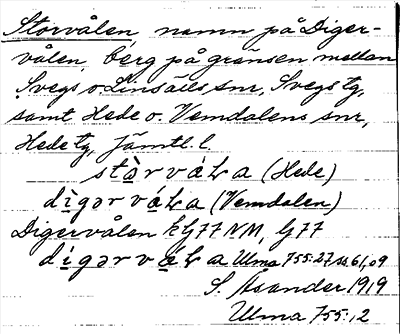 Storvålen, namn på Diger-
vålen, berg på gränsen mellan
Svegs o. Linsälls snr, Svegs tg,
samt Hede o. Vemdalens snr,
Hede tg, Jämtl. l.
(Hede)
(Vemdalen)
Digervålen kG77 NM, G77
Ulma 755:27, 61,09
S. Åsander 1919
Ulma 755:12